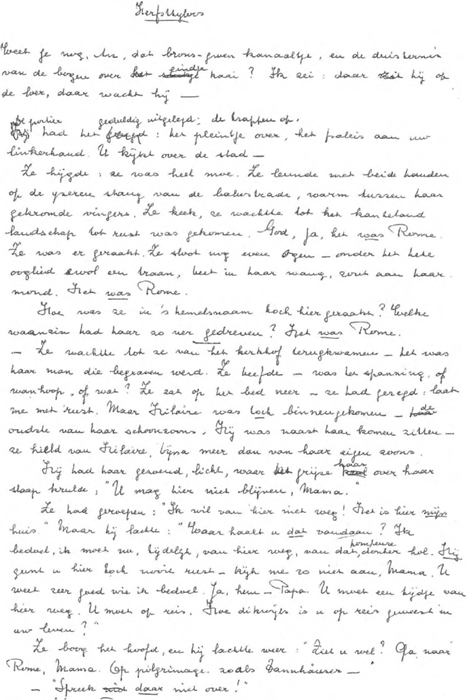 Herfsttijloos
Weet je nog, An, dat brons-groen kanaaltje, en de duisternis
van de bogen over het eindje kaai? Ik zei: daar zit hij op
de loer, daar wacht hij —
De portier geduldig uitgelegd; de trappen op,
had het gezegd: het pleintje over, het paleis aan uw
linkerhand. U kijkt over de stad —
Ze hijgde; ze was heel moe. Ze leunde met beide handen
op de yzeren stang van de balustrade, warm tussen haar
gekromde vingers. Ze keek, ze wachtte tot het kantelend
landschap tot rust was gekomen. God, ja, het was Rome.
Ze was er geraakt. Ze sloot nog even ogen — onder het hete
ooglid zwol een traan, beet in haar wang, zout aan haar
mond. Het was Rome.
Hoe was ze in 's hemelsnaam toch hier geraakt? Welke
waanzin had haar zo ver gedreven? Het was Rome.
— Ze wachtte tot ze van het kerkhof terugkwamen — het was
haar man die begraven werd. Ze beefde — was het spanning, of
wanhoop, of wat? Ze zat op het bed neer — ze had gezegd: laat
me met rust. Maar Hilaire was toch binnengekomen — de
oudste van haar schoonzoons. Hij was naast haar komen zitten —
ze hield van Hilaire, bijna meer dan van haar eigen zoons.
Hij had haar gezoend, licht, waar het grijze haar over haar
slaap krulde: "U mag hier niet blijven, Mama."
Ze had geroepen: "Ik wil van hier niet weg! Het is hier mijn
huis." Maar hij lachte: "Waar haalt u dat vandaan? Ik
bedoel, ik moet nu, tijdelijk, van hier weg, aan dat pompeuze,
donker hol. Hij
gunt u hier toch nooit rust — kijk me zo niet aan, Mama. U
weet zeer goed wie ik bedoel. Ja, hem — Papa. U moet een tijdje van
hier weg. U moet op reis. Hoe dikwijls is u op reis geweest in
uw leven?"
Ze boog het hoofd, en hij lachte weer: "Ziet u wel? Ga naar
Rome, Mama. Op pilgrimage, zoals Tannhäuser —"
— "Spreek daar niet over!"